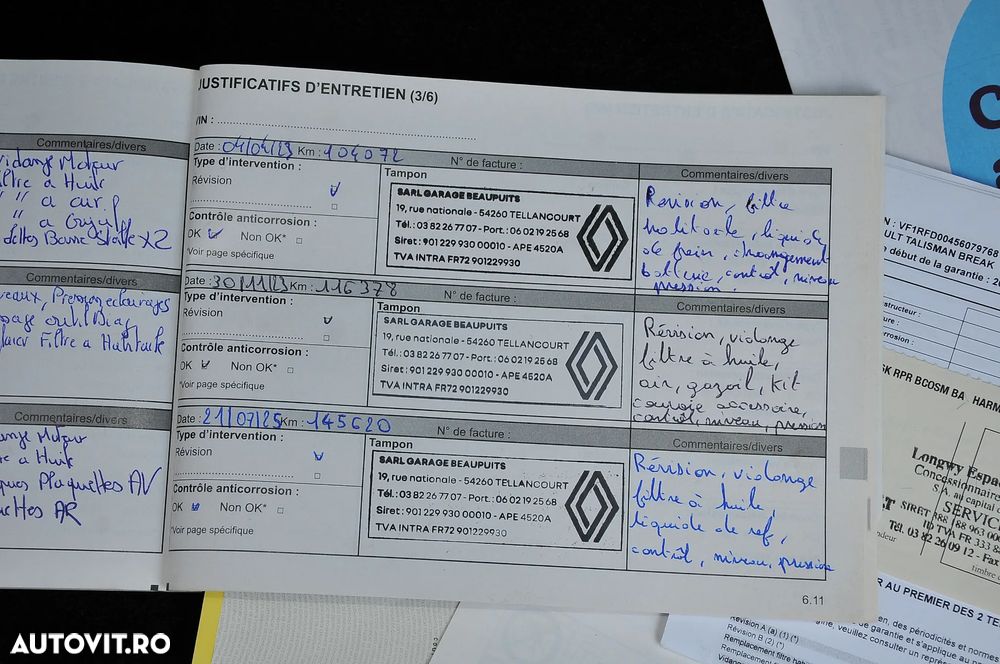 JUSTIFICATIFS D'ENTRETIEN (3/6)
VIN :
Date : 04/04/23 Km : 104072 N° de facture :
Type d'intervention :
Révision
Contrôle anticorrosion :
OK Non OK*
*Voir page spécifique
Tampon
SARL GARAGE BEAUPUITS
19, rue nationale - 54260 TELLANCOURT
Tél. : 03 82 26 77 07 - Port. : 06 02 19 25 68
Siret : 901 229 930 00010 - APE 4520A
TVA INTRA FR72 901229930
Commentaires/divers
Révision, filtre
habitacle, liquide
de frein, changement
batterie, contrôl, niveau
pression.
Date : 30/11/23 Km : 116378 N° de facture :
Type d'intervention :
Révision
Contrôle anticorrosion :
OK Non OK*
*Voir page spécifique
Tampon
SARL GARAGE BEAUPUITS
19, rue nationale - 54260 TELLANCOURT
Tél. : 03 82 26 77 07 - Port. : 06 02 19 25 68
Siret : 901 229 930 00010 - APE 4520A
TVA INTRA FR72 901229930
Commentaires/divers
Révision, vidange
filtre à huile,
air, gazoil, kit
courroie accessoire,
contrôl, niveau, pression
Date : 21/07/25 Km : 145620 N° de facture :
Type d'intervention :
Révision
Contrôle anticorrosion :
OK Non OK*
*Voir page spécifique
Tampon
SARL GARAGE BEAUPUITS
19, rue nationale - 54260 TELLANCOURT
Tél. : 03 82 26 77 07 - Port. : 06 02 19 25 68
Siret : 901 229 930 00010 - APE 4520A
TVA INTRA FR72 901229930
Commentaires/divers
Révision, vidange
filtre à huile,
liquide de ref,
contrôl, niveau, pression
6.11
Commentaires/divers
Moteur
a Huile
Commentaires/divers
Filtre a Habitacle
Commentaires/divers
Moteur
a Huile
Plaquettes AV
AR
: VF1RFD00456079768
ULT TALISMAN BREAK
début de la garantie : 20
structeur :
ture :
orrosion :
SK RPR BCOSM BA HARM
Longwy Espa
Concessionnaire
S.A. au capital
SERVIC
Tél. 03 82 26 09 12 - Fax
timbre
R AU PREMIER DES 2 TE
Révision A (a) (1) (*)
Révision B (2) (*)
AUTOVIT.RO